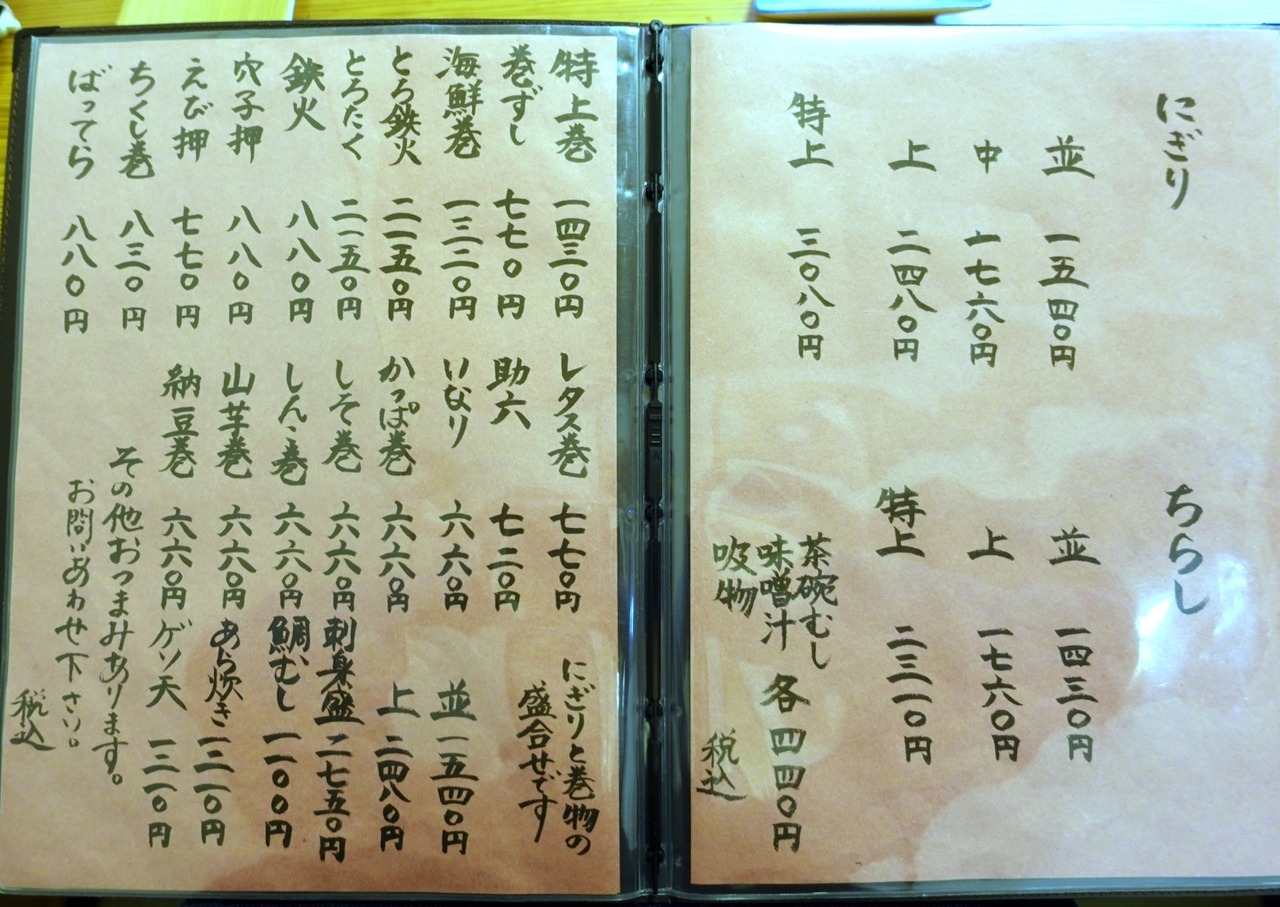 にぎり
並 一五四〇円
中 一七六〇円
上 二四八〇円
特上 三〇八〇円
ちらし
並 一四三〇円
上 一七六〇円
特上 二三一〇円
茶碗むし
味噌汁 各四四〇円
吸物
税込
特上巻 一四三〇円
巻ずし 七七〇円
海鮮巻 一三二〇円
とろ鉄火 二一五〇円
とろたく 二一五〇円
鉄火 八八〇円
穴子押 八八〇円
えび押 七七〇円
ちくし巻 八三〇円
ばってら 八八〇円
レタス巻 七七〇円
助六 七二〇円
いなり 六六〇円
かっぱ巻 六六〇円
しそ巻 六六〇円
しんこ巻 六六〇円
山芋巻 六六〇円
納豆巻 六六〇円
にぎりと巻物の
盛合せです
並 一五四〇円
上 二四八〇円
刺身盛 二七五〇円
鯛むし 一一〇〇円
あら炊き 一三二〇円
ゲソ天 一二一〇円
その他おつまみあります。
お問いあわせ下さい。
税込